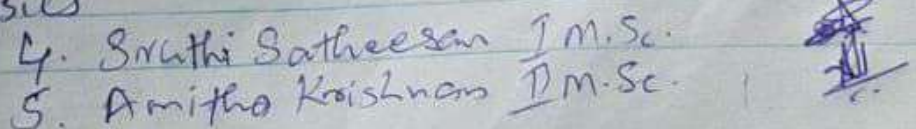 4. Sruthi Satheesan I M.Sc.
5. Amitha Krishnan II M.Sc.